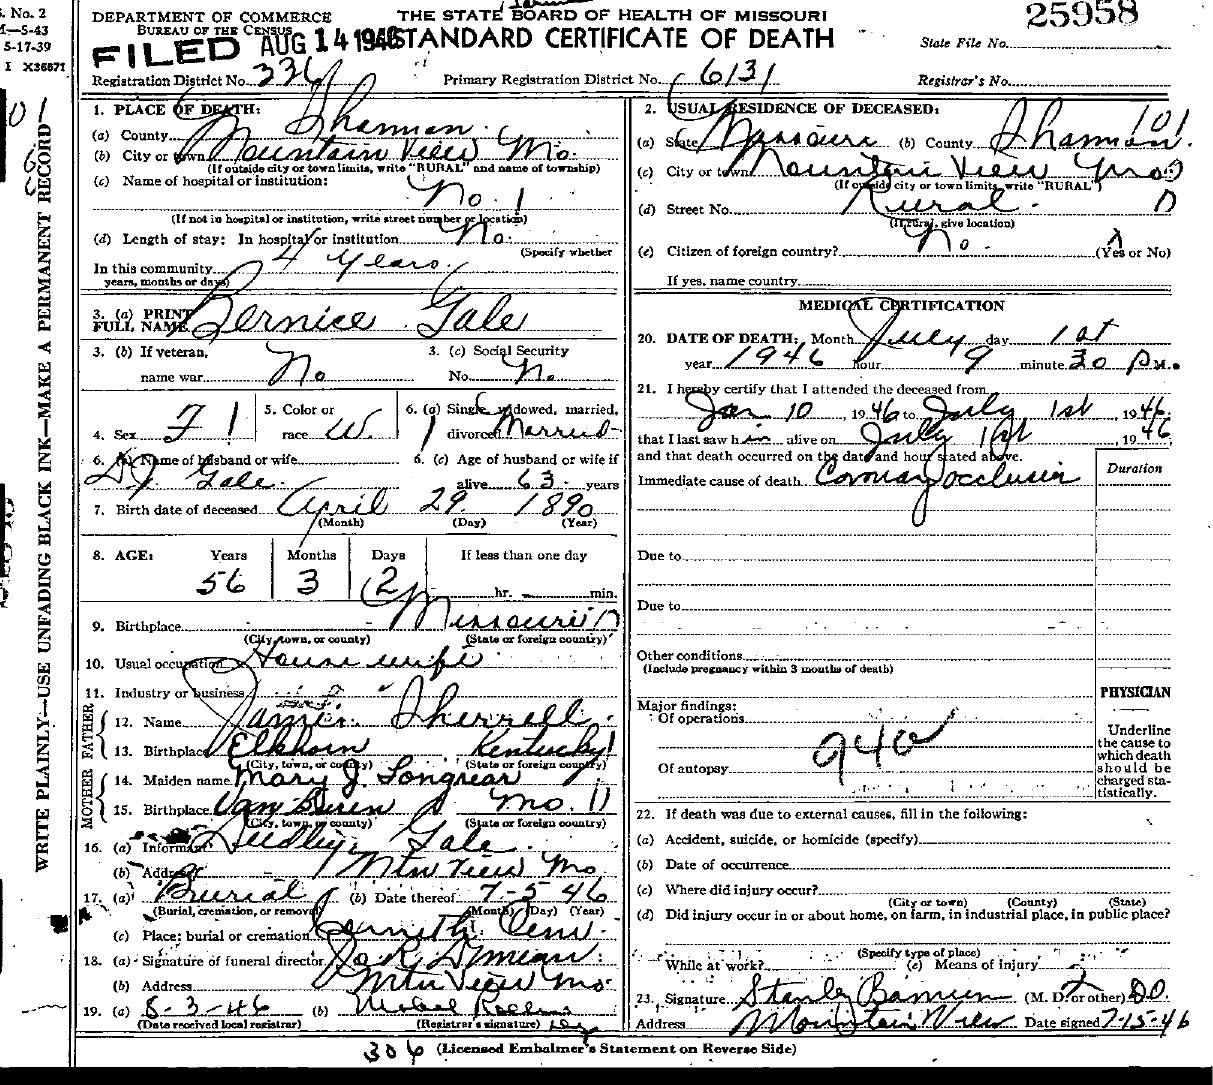 S. No. 2
M—5-43
5-17-39
I X36671
WRITE PLAINLY—USE UNFADING BLACK INK—MAKE A PERMANENT RECORD
DEPARTMENT OF COMMERCE
BUREAU OF THE CENSUS
THE STATE BOARD OF HEALTH OF MISSOURI
STANDARD CERTIFICATE OF DEATH
25958
State File No.
FILED AUG 14 1946
Registration District No. 336
Primary Registration District No. 6131
Registrar's No.
1. PLACE OF DEATH:
(a) County Shannon
(b) City or town Mountain View Mo.
(If outside city or town limits, write "RURAL" and name of township)
(c) Name of hospital or institution:
No. 1
(If not in hospital or institution, write street number or location)
(d) Length of stay: In hospital or institution No.
(Specify whether
In this community 4 years.
years, months or days)
3. (a) PRINT FULL NAME Bernice Gale
3. (b) If veteran, name war No
3. (c) Social Security No. No.
4. Sex F 1
5. Color or race W.
6. (a) Single, widowed, married, divorced Married
6. (b) Name of husband or wife
D J Gale.
6. (c) Age of husband or wife if alive 63 years
7. Birth date of deceased April 29 1890
(Month) (Day) (Year)
8. AGE: Years Months Days If less than one day
56 3 2 hr. min.
9. Birthplace Missouri
(City, town, or county) (State or foreign country)
10. Usual occupation House wife
11. Industry or business
FATHER
12. Name James Sherrell
13. Birthplace Elkhorn Kentucky
(City, town, or county) (State or foreign country)
MOTHER
14. Maiden name Mary J. Longrear
15. Birthplace Van Buren Mo.
(City, town, or county) (State or foreign country)
16. (a) Informant Dudley Gale
(b) Address Mtn View Mo
17. (a) Burial (b) Date thereof 7-5-46
(Burial, cremation, or removal) (Month) (Day) (Year)
(c) Place: burial or cremation Cem.
18. (a) Signature of funeral director Jack
(b) Address Mtn View Mo.
19. (a) 8-3-46 (b) Mabel
(Date received local registrar) (Registrar's signature)
2. USUAL RESIDENCE OF DECEASED:
101
(a) State Missouri (b) County Shannon.
(c) City or town Mountain View Mo
(If outside city or town limits, write "RURAL")
(d) Street No. Rural.
(If rural, give location)
(e) Citizen of foreign country? No. (Yes or No)
If yes, name country
MEDICAL CERTIFICATION
20. DATE OF DEATH: Month July day 1st
year 1946 hour 9 minute 30 P.M.
21. I hereby certify that I attended the deceased from
Jan 10, 1946 to July 1st, 1946
that I last saw him alive on July 1st, 1946
and that death occurred on the date and hour stated above.
Duration
Immediate cause of death Coronary occlusion
Due to
Due to
Other conditions
(Include pregnancy within 3 months of death)
PHYSICIAN
Underline the cause to which death should be charged statistically.
Major findings:
Of operations
940
Of autopsy
22. If death was due to external causes, fill in the following:
(a) Accident, suicide, or homicide (specify)
(b) Date of occurrence
(c) Where did injury occur?
(City or town) (County) (State)
(d) Did injury occur in or about home, on farm, in industrial place, in public place?
(Specify type of place)
While at work? (e) Means of injury
23. Signature Stanley (M. D. or other) DO.
Address Mountain View Date signed 7-15-46
306
(Licensed Embalmer's Statement on Reverse Side)